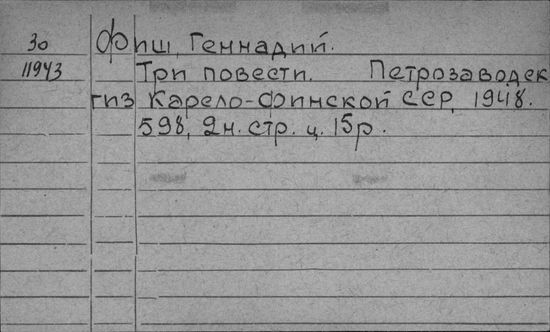 30 Фиш, Геннадий.
11943 Три повести. Петрозаводск
гиз Карело-Финской ССР, 1948.
598, 2н. стр. ц. 15р.